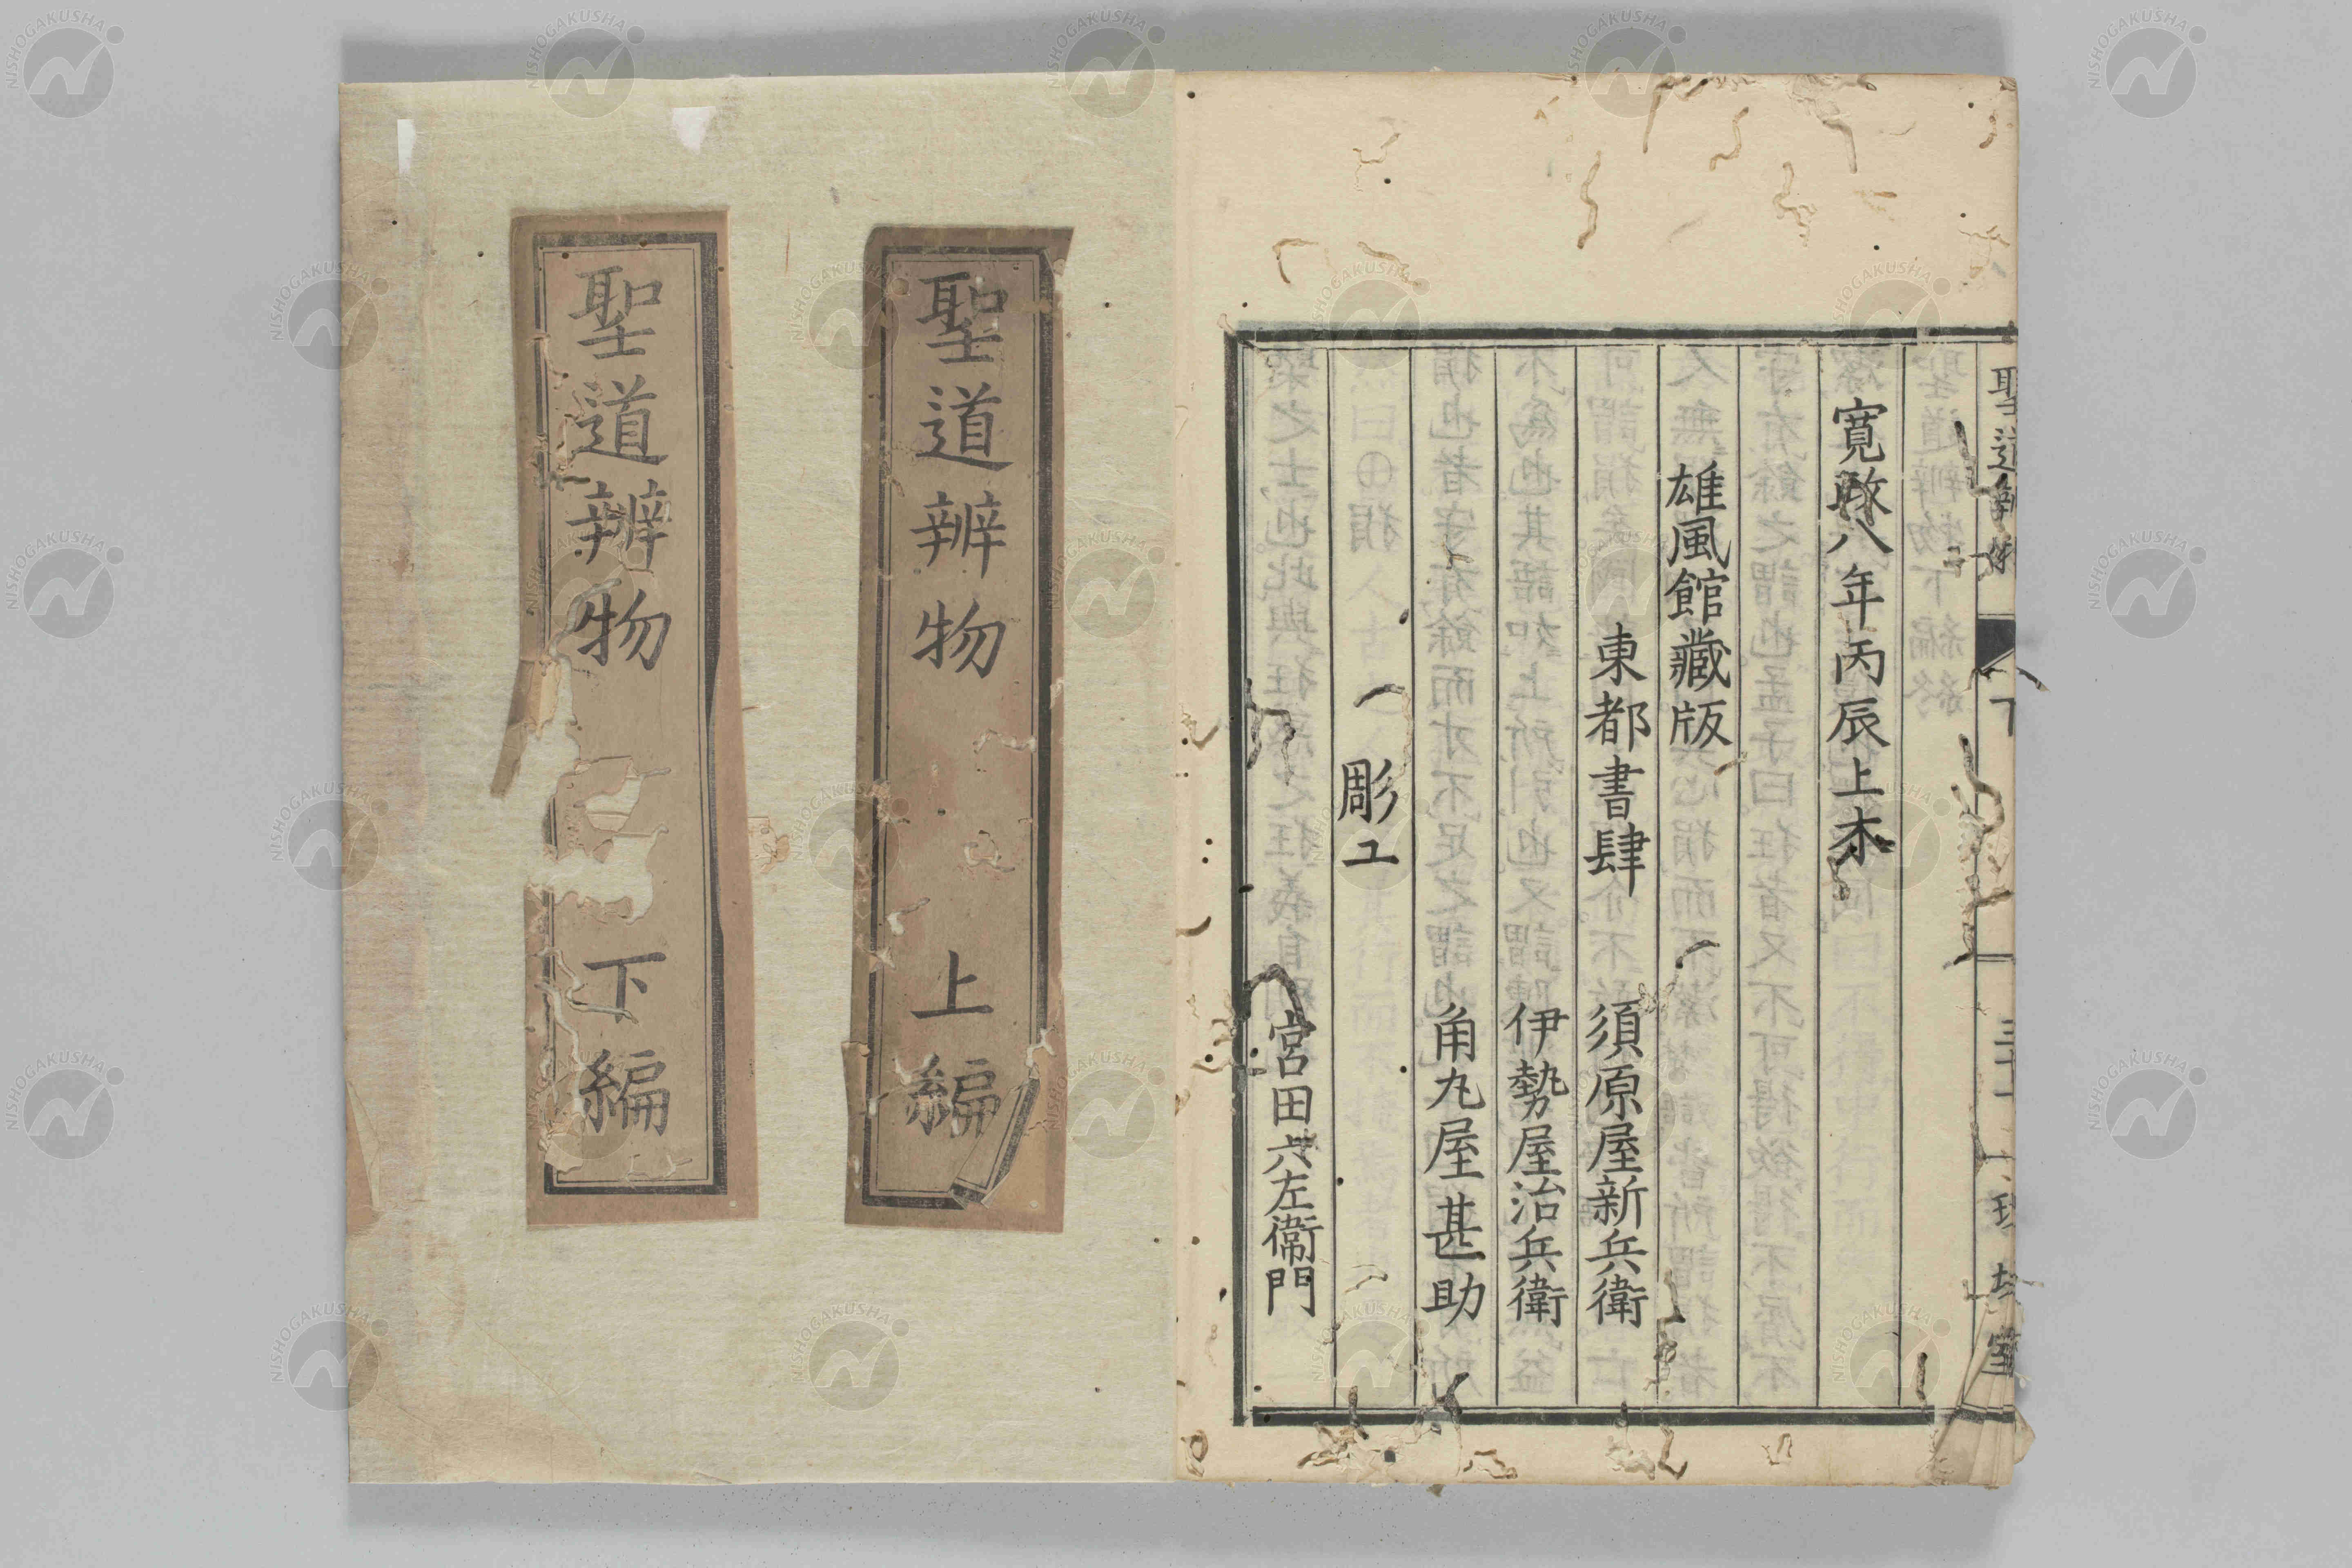 寛政八年丙辰上木
雄風館藏版
東都書肆 須原屋新兵衛
伊勢屋治兵衛
角丸屋甚助
彫工
宮田六左衞門
聖道辨物 上編
聖道辨物 下編
NISHOGAKUSHA